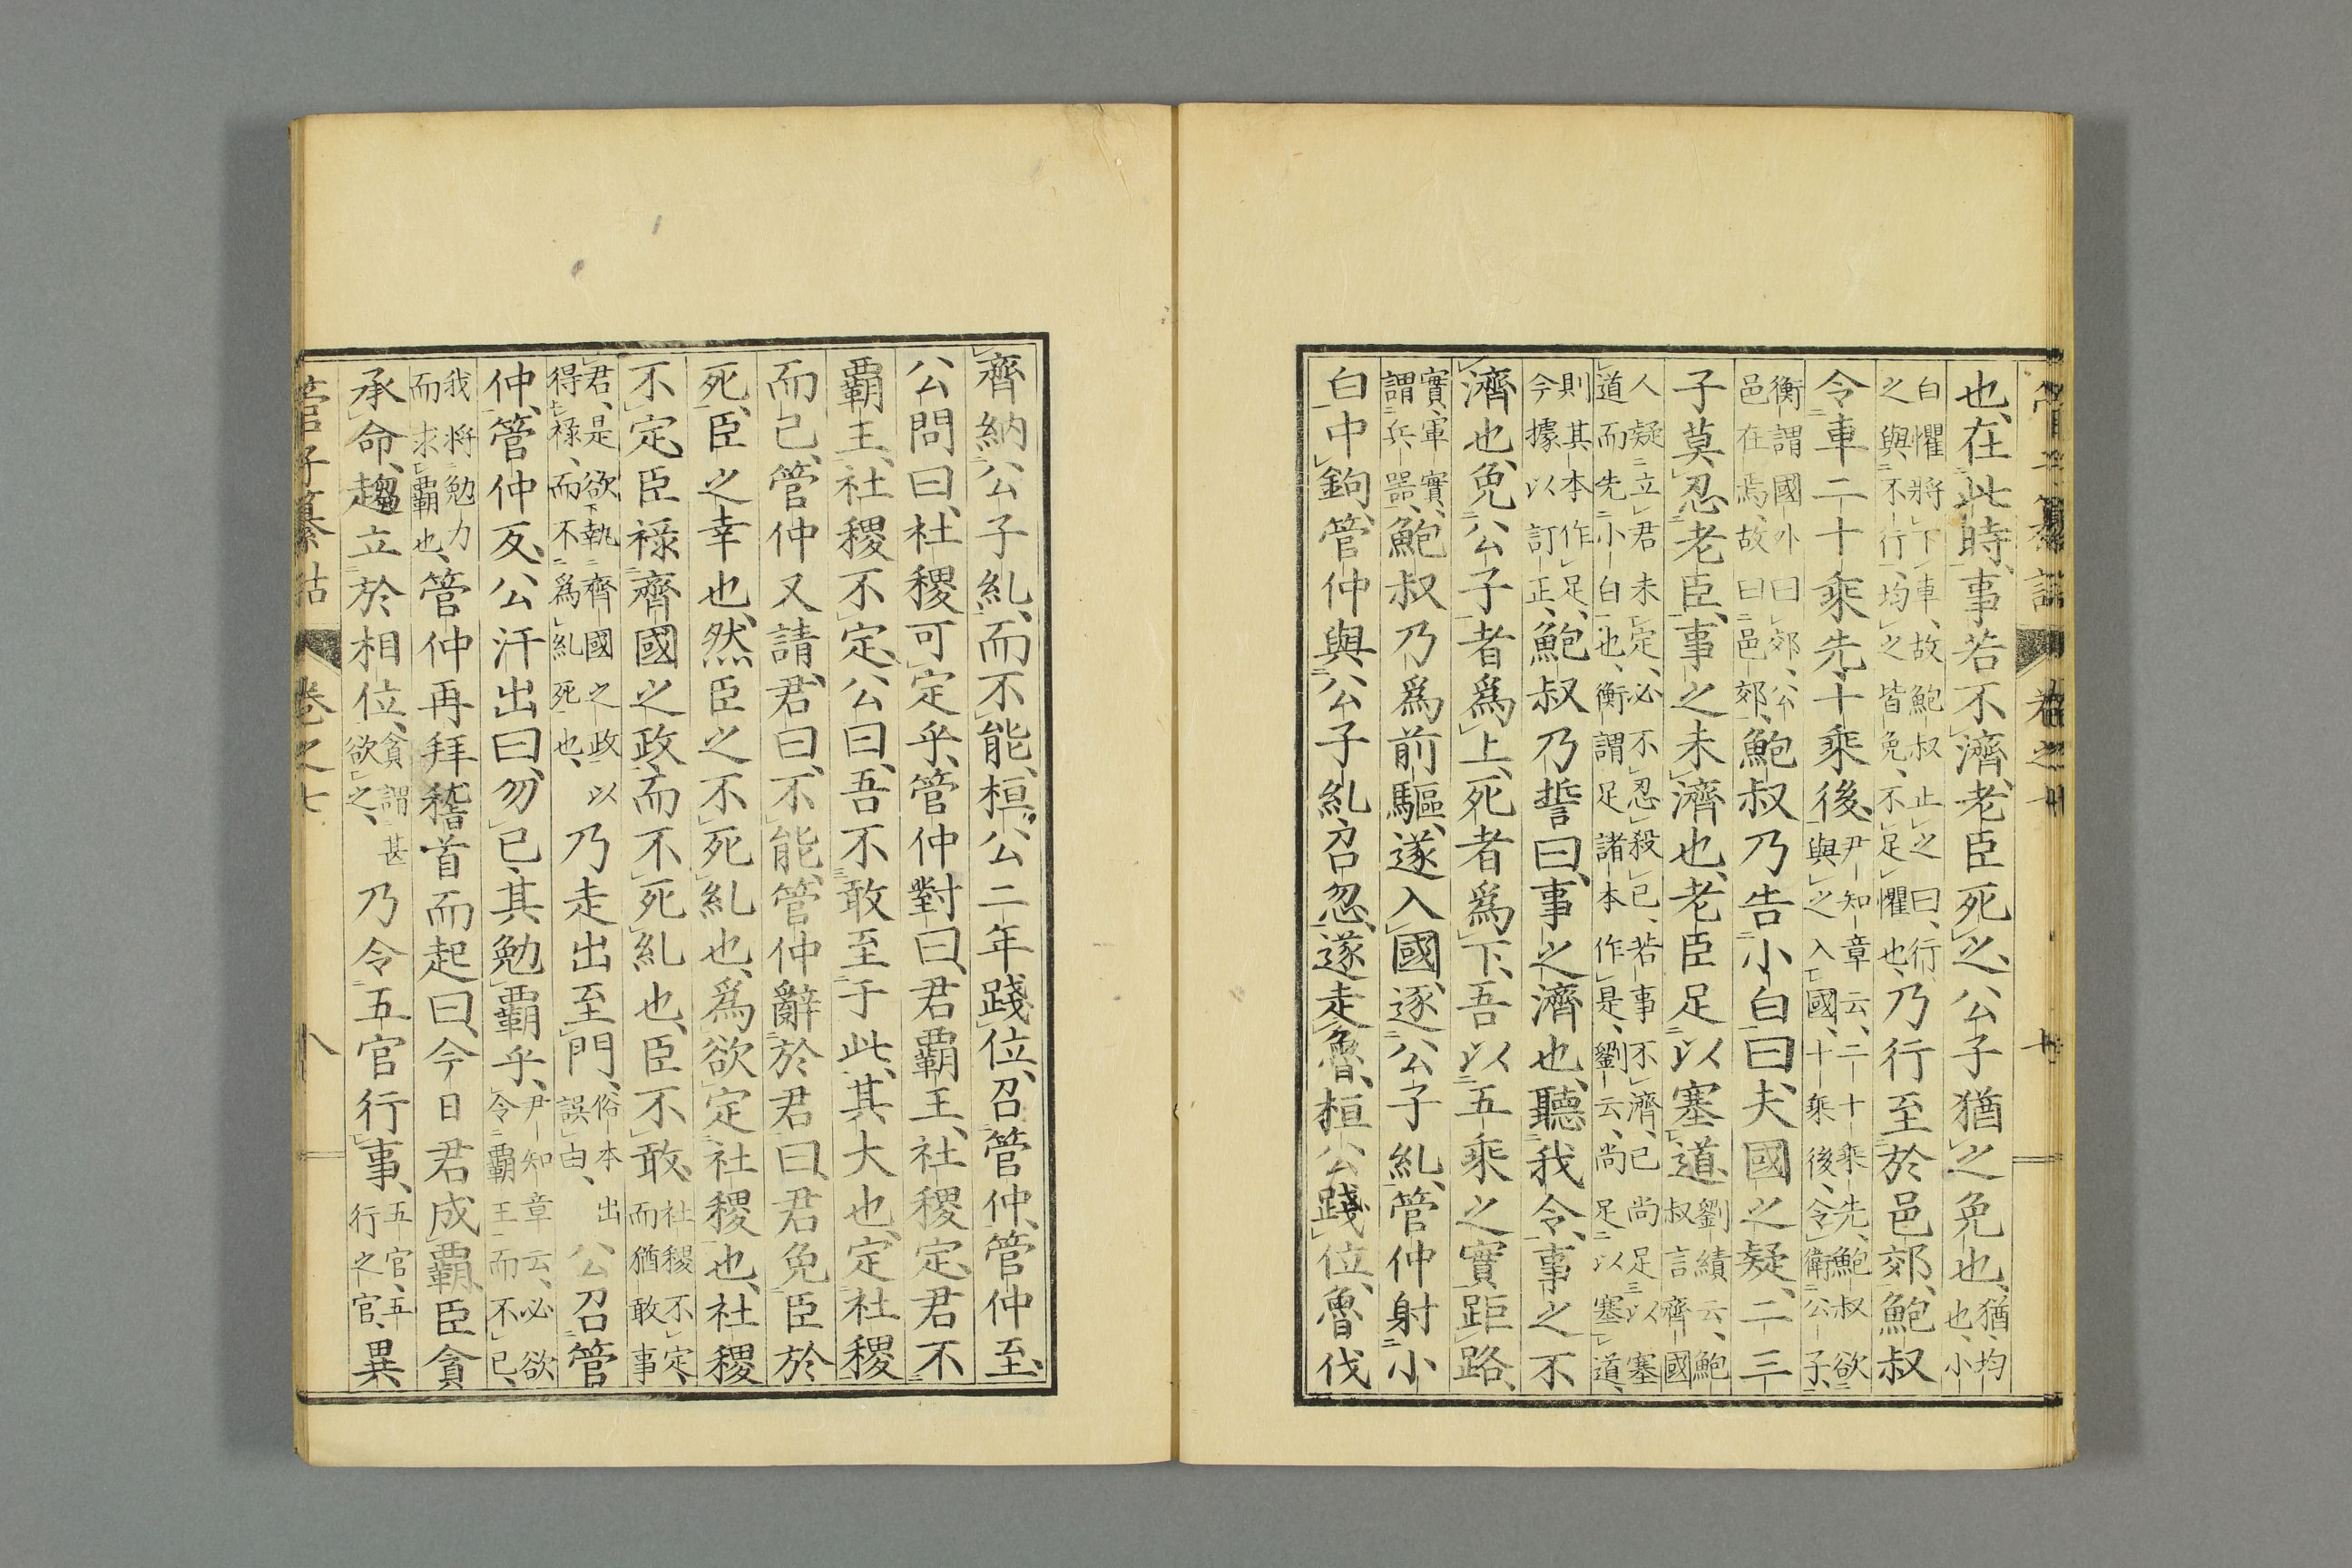 管子纂詁　卷之七
也、在此時、事若不濟、老臣死之、公子猶之免也、猶、均也、小
白懼將下車、故鮑叔止之曰、行、之與不行、均之皆免、不足懼也、乃行至於邑郊、鮑叔
令車二十乘先、十乘後、尹知章云、二十乘先、鮑叔欲與之入國、十乘後、令衛公子、
衡謂國外曰郊、公邑在焉、故曰邑郊、鮑叔乃告小白曰、夫國之疑、二三
子莫忍老臣、事之未濟也、老臣足以塞道、劉績云、鮑叔言齊國
人疑立君未定、必不忍殺己、若事不濟、己尚足以塞道而先小白也、衡謂足諸本作是、劉云、尚足以塞道、
則其本作足、今據以訂正、鮑叔乃誓曰、事之濟也、聽我令、事之不
濟也、免公子者爲上、死者爲下、吾以五乘之實距路、
實、軍實、謂兵器、鮑叔乃爲前驅、遂入國、逐公子糺、管仲射小
白中鉤、管仲與公子糺召忽、遂走魯、桓公踐位、魯伐
齊納公子糺、而不能、桓公二年踐位、召管仲、管仲至、
公問曰、社稷可定乎、管仲對曰、君霸王、社稷定、君不
霸王、社稷不定、公曰、吾不敢至于此、其大也、定社稷
而已、管仲又請、君曰、不能、管仲辭於君曰、君免臣於
死、臣之幸也、然臣之不死糺也、爲欲定社稷也、社稷
不定、臣祿齊國之政、而不死糺也、臣不敢、社稷不定、而猶敢事
君、是欲執齊國之政、以得祿、而不爲糺死也、乃走出至門、俗本出誤由、公召管
仲、管仲反、公汗出曰、勿已、其勉霸乎、尹知章云、必欲令霸王而不已、
我將勉力而求霸也、管仲再拜稽首而起曰、今日君成霸、臣貪
承命、趨立於相位、貪謂甚欲之、乃令五官行事、五官、五行之官、異
管子纂詁　卷之七　八